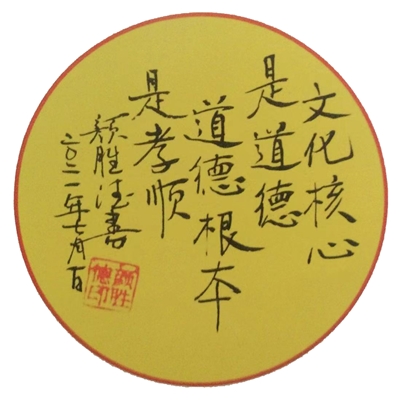 文化核心
是道德
道德根本
是孝顺
颜胜德书
二〇二一年七月一日